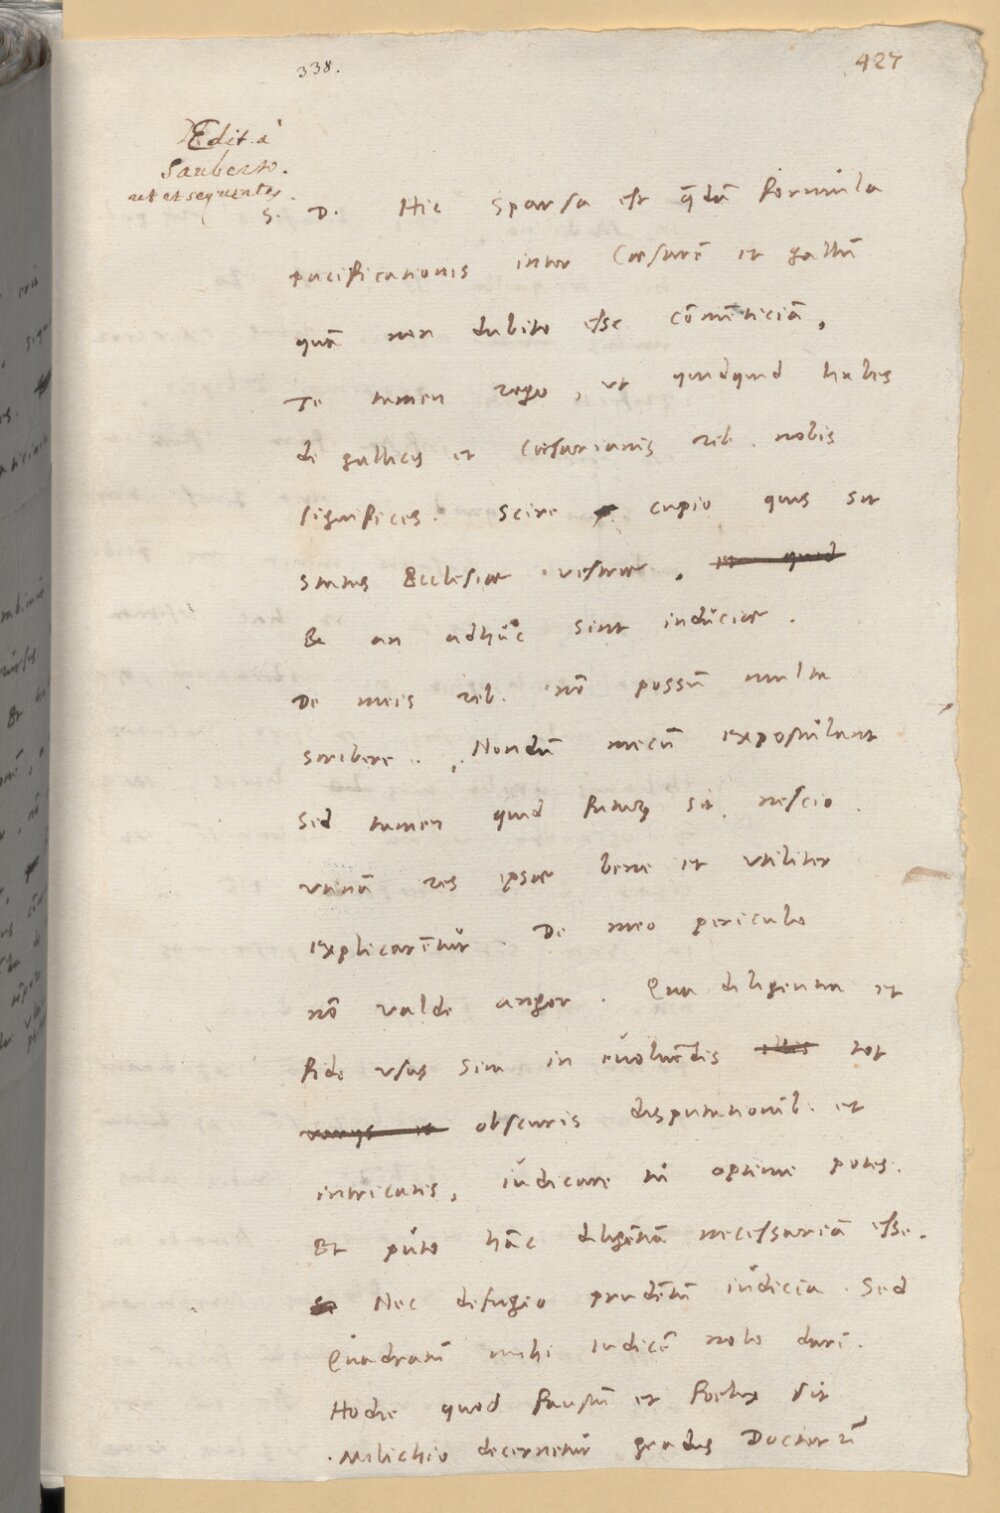 338.
427
Edit. a
Sauberto.
ut et sequentes.
S. D. Hic sparsa est q̄dā formula
pacificationis inter Cæsarē et gallū
quā non dubito esse cōmēticiā,
Te tamen rogo, ut quidquid habes
de gallicis et Cæsarianis reb. nobis
significes. Scire cupio quis sit
status Ecclesiæ vestræ, et quid
Et an adhuc sint induciæ.
De meis reb. nō possū multa
scribere. Nondū mecū expostulant
sed tamen quid futurū sit nescio.
utinā res ipsæ bene et utiliter
explicarētur. De meo periculo
nō valde angor. Qua diligentia et
fide usus sim in evolvēdis illis tot
varijs et obscuris disputationib. et
intricatis, iudicare tu optime potes.
Et puto hāc diligētiā necessariā esse.
Nec defugio prudētū iudicia. Sed
Quadratū mihi iudicē nolo dari.
Hodie quod faustū et foelix sit
Milichio decernetur gradus Doctorū